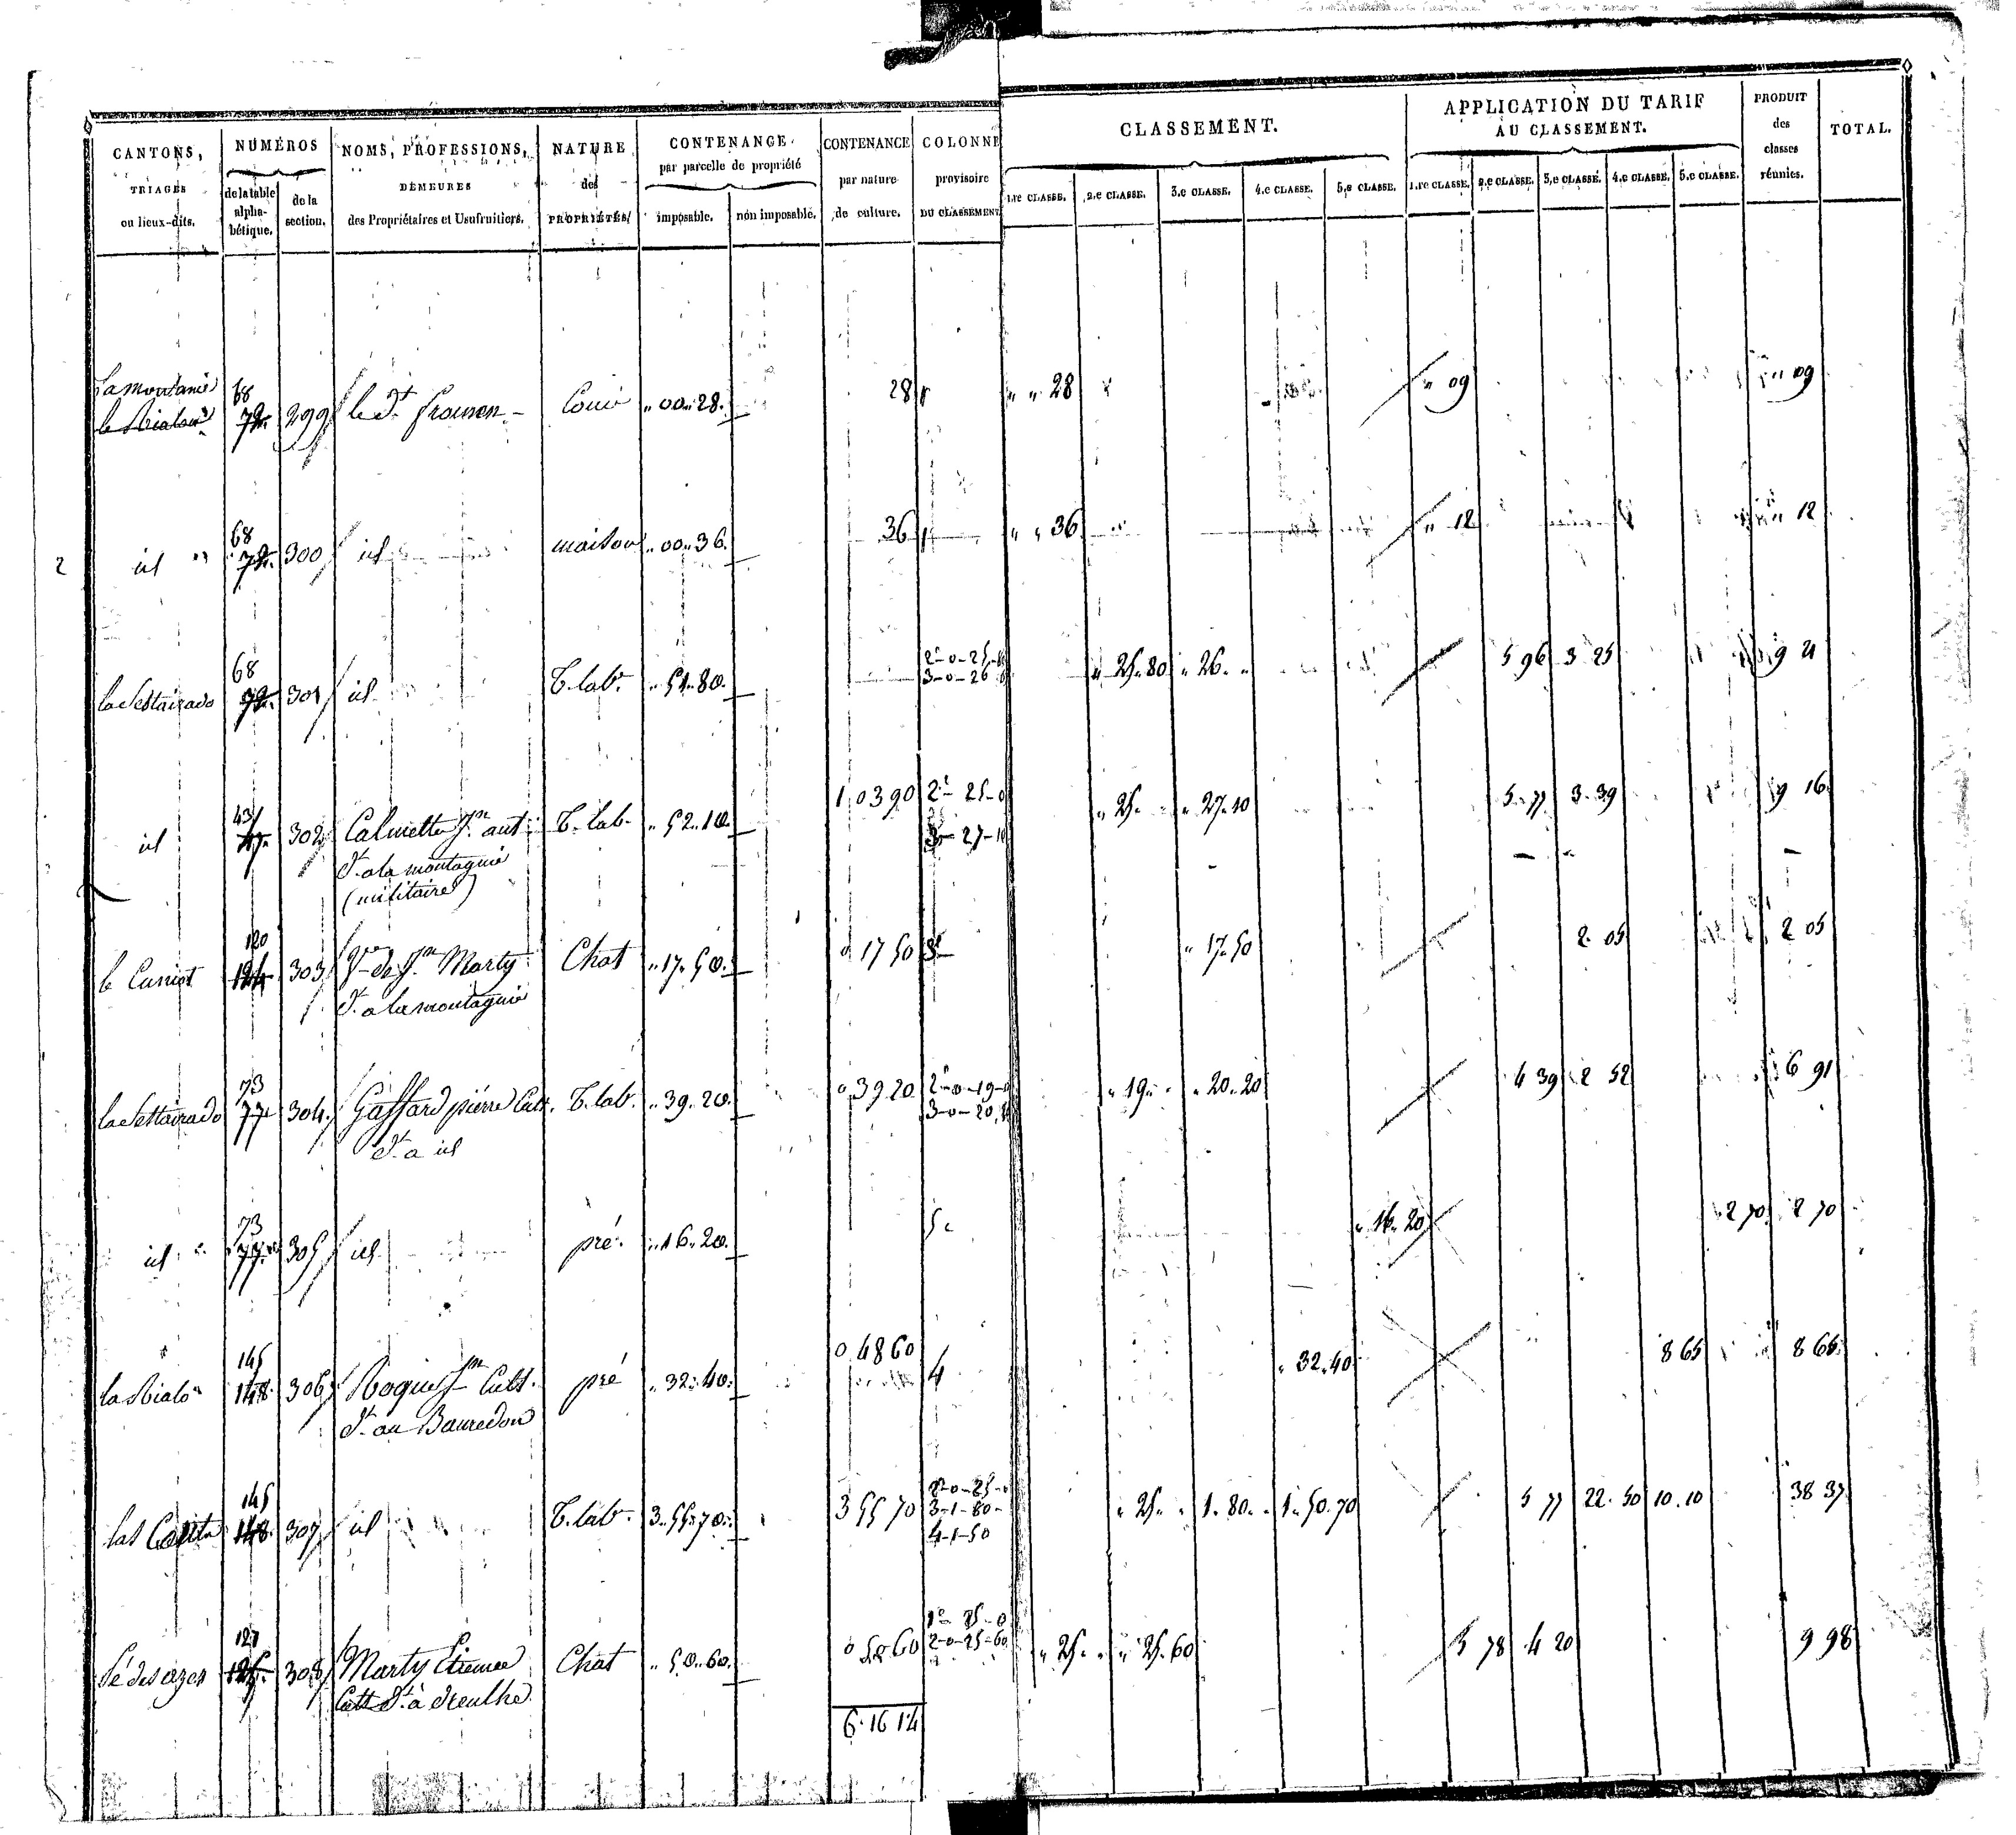 CANTONS,
TRIAGES
ou lieux-dits.
NUMÉROS
de la table
alpha-
bétique.
de la
section.
NOMS, PROFESSIONS,
DEMEURES
des Propriétaires et Usufruitiers.
NATURE
des
PROPRIÉTÉS.
CONTENANCE
par parcelle de propriété
imposable.
non imposable.
CONTENANCE
par nature
de culture.
COLONNE
provisoire
DU CLASSEMENT
CLASSEMENT.
1.re CLASSE. 2.e CLASSE. 3.e CLASSE. 4.e CLASSE. 5.e CLASSE.
APPLICATION DU TARIF
AU CLASSEMENT.
1.re CLASSE. 2.e CLASSE. 3.e CLASSE. 4.e CLASSE. 5.e CLASSE.
PRODUIT
des
classes
réunies.
TOTAL.
68
72 299 le dt " 00 28. 28 " " 28 " 09 " 09
68
2 id 72 300 id maison " 00 36. 36 " " 36 " 12 " 12
68 2e 0 - 25 - 80
72 301 id T. lab. " 51 80. 3 - 0 - 26 " 25. 80 " 26. " 5 96 3 25 9 21
43 1 03 90 2e - 25 - 0
id 302 Calmette jn ant T. lab. " 52. 10. 3 - 27 - 10 " 25. " " 27. 10 5 77 3 39 9 16
dt a la montagnie
(militaire)
120
124 303 Ve de jn Marty Chat " 17. 50. 0 17 50 3e " 17. 50 2 05 2 05
dt a la montagnie
73 2e - 0 - 19 - 0
77 304 Gaffard pierre Cult. T. lab. " 39. 20. 0 39 20 3 - 0 - 20 " 19. " " 20. 20 4 39 2 52 6 91
dt a id
73
id 77 305 id pré. " 16. 20. 5e " 16. 20 2 70 2 70
145 0 48 60
148 306 Roque jn Cult. pré " 32. 40. 4 " 32. 40 8 65 8 65
dt au Bauredon
145 2 - 0 - 25 - 0
148 307 id T. lab. 3. 55. 70. 3 55 70 3 - 1 - 80 - " 25. " 1. 80. " 1. 50. 70 5 77 22. 50 10. 10 38 37
4 - 1 - 50
127 1e - 25 - 0
308 Marty Etienne Chat " 50. 60. 0 50 60 2 - 0 - 25 - 60 " 25. " " 25. 60 5 78 4 20 9 98
Cult dt à
6. 16 14